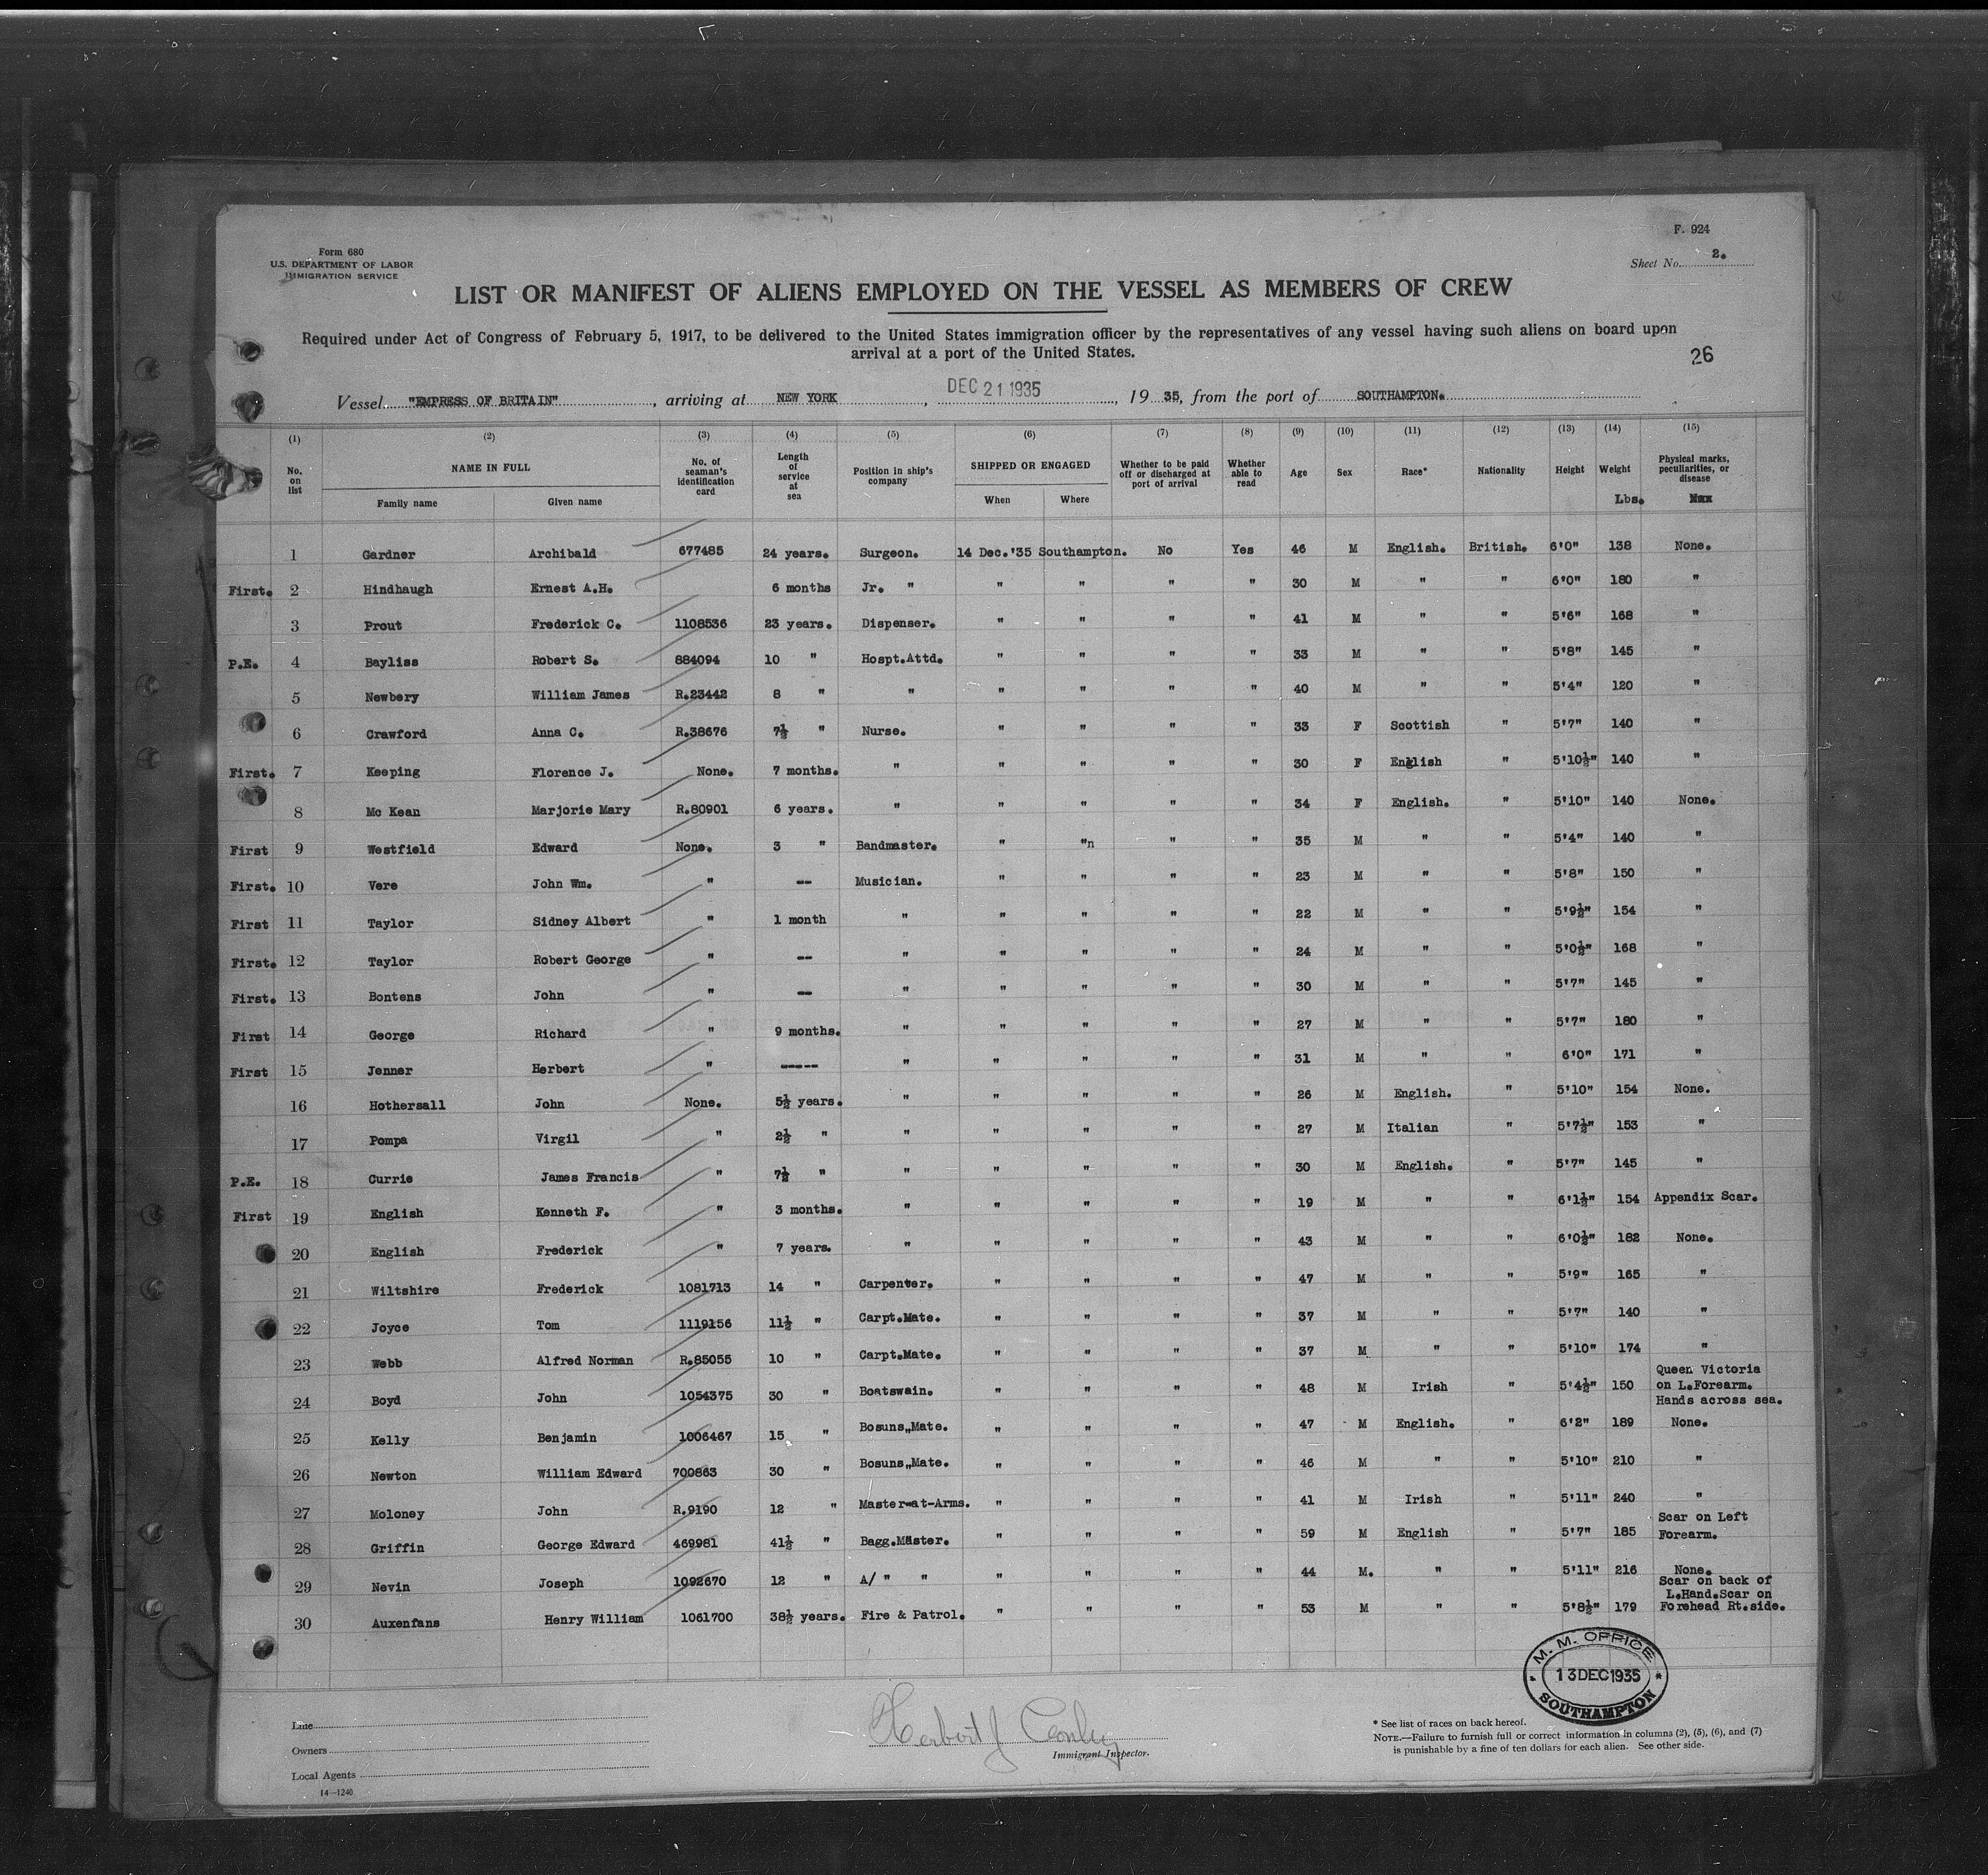 F. 924
Form 680
U.S. DEPARTMENT OF LABOR
IMMIGRATION SERVICE
Sheet No. 2.
LIST OR MANIFEST OF ALIENS EMPLOYED ON THE VESSEL AS MEMBERS OF CREW
Required under Act of Congress of February 5, 1917, to be delivered to the United States immigration officer by the representatives of any vessel having such aliens on board upon
arrival at a port of the United States.
26
Vessel "EMPRESS OF BRITAIN", arriving at NEW YORK, DEC 21 1935, 19 35, from the port of SOUTHAMPTON.
(1) (2) (3) (4) (5) (6) (7) (8) (9) (10) (11) (12) (13) (14) (15)
No. on list NAME IN FULL Family name Given name No. of seaman's identification card Length of service at sea Position in ship's company SHIPPED OR ENGAGED When Where Whether to be paid off or discharged at port of arrival Whether able to read Age Sex Race* Nationality Height Weight Lbs. Physical marks, peculiarities, or disease
1 Gardner Archibald 677485 24 years. Surgeon. 14 Dec.'35 Southampton. No Yes 46 M English. British. 6'0" 138 None.
First. 2 Hindhaugh Ernest A.H. 6 months Jr. " " " " " 30 M " " 6'0" 180 "
3 Prout Frederick C. 1108536 23 years. Dispenser. " " " " 41 M " " 5'6" 168 "
P.E. 4 Bayliss Robert S. 884094 10 " Hospt.Attd. " " " " 33 M " " 5'8" 145 "
5 Newbery William James R.23442 8 " " " " " " 40 M " " 5'4" 120 "
6 Crawford Anna C. R.38676 7½ " Nurse. " " " " 33 F Scottish " 5'7" 140 "
First. 7 Keeping Florence J. None. 7 months. " " " " " 30 F English " 5'10½" 140 "
8 Mc Kean Marjorie Mary R.80901 6 years. " " " " " 34 F English. " 5'10" 140 None.
First 9 Westfield Edward None. 3 " Bandmaster. " "n " " 35 M " " 5'4" 140 "
First. 10 Vere John Wm. " -- Musician. " " " " 23 M " " 5'8" 150 "
First 11 Taylor Sidney Albert " 1 month " " " " " 22 M " " 5'9½" 154 "
First. 12 Taylor Robert George " -- " " " " " 24 M " " 5'0½" 168 "
First. 13 Bontens John " -- " " " " " 30 M " " 5'7" 145 "
First 14 George Richard " 9 months. " " " " " 27 M " " 5'7" 180 "
First 15 Jenner Herbert " ----- " " " " " 31 M " " 6'0" 171 "
16 Hothersall John None. 5½ years. " " " " " 26 M English. " 5'10" 154 None.
17 Pompa Virgil " 2½ " " " " " " 27 M Italian " 5'7½" 153 "
P.E. 18 Currie James Francis " 7½ " " " " " " 30 M English. " 5'7" 145 "
First 19 English Kenneth F. " 3 months. " " " " " 19 M " " 6'1½" 154 Appendix Scar.
20 English Frederick " 7 years. " " " " " 43 M " " 6'0½" 182 None.
21 Wiltshire Frederick 1081713 14 " Carpenter. " " " " 47 M " " 5'9" 165 "
22 Joyce Tom 1119156 11½ " Carpt.Mate. " " " " 37 M " " 5'7" 140 "
23 Webb Alfred Norman R.85055 10 " Carpt.Mate. " " " " 37 M " " 5'10" 174 "
24 Boyd John 1054375 30 " Boatswain. " " " " 48 M Irish " 5'4½" 150 Queen Victoria
on L.Forearm.
Hands across sea.
25 Kelly Benjamin 1006467 15 " Bosuns„Mate. " " " " 47 M English. " 6'2" 189 None.
26 Newton William Edward 700863 30 " Bosuns„Mate. " " " " 46 M " " 5'10" 210 "
27 Moloney John R.9190 12 " Master-at-Arms. " " " " 41 M Irish " 5'11" 240 "
28 Griffin George Edward 469981 41½ " Bagg.Master. " " " " 59 M English " 5'7" 185 Scar on Left
Forearm.
29 Nevin Joseph 1092670 12 " A/ " " " " " " 44 M. " " 5'11" 216 None.
30 Auxenfans Henry William 1061700 38½ years. Fire & Patrol. " " " " 53 M " " 5'8½" 179 Scar on back of
L.Hand.Scar on
Forehead Rt.side.
M. M. OFFICE
13 DEC 1935
SOUTHAMPTON
Line
Owners
Local Agents
14—1240
Herbert J Conley
Immigrant Inspector.
* See list of races on back hereof.
NOTE.—Failure to furnish full or correct information in columns (2), (5), (6), and (7)
is punishable by a fine of ten dollars for each alien. See other side.